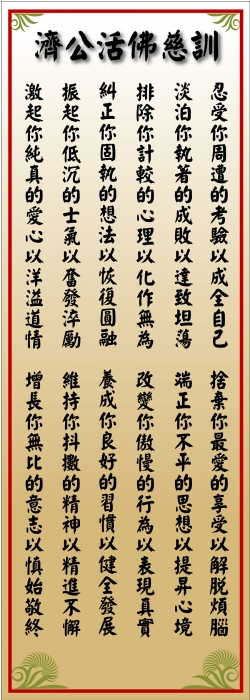 濟公活佛慈訓
忍受你周遭的考驗以成全自己
捨棄你最愛的享受以解脫煩腦
淡泊你執著的成敗以達致坦蕩
端正你不平的思想以提昇心境
排除你計較的心理以化作無為
改變你傲慢的行為以表現真實
糾正你固執的想法以恢復圓融
養成你良好的習慣以健全發展
振起你低沉的士氣以奮發淬勵
維持你抖擻的精神以精進不懈
激起你純真的愛心以洋溢道情
增長你無比的意志以慎始敬終